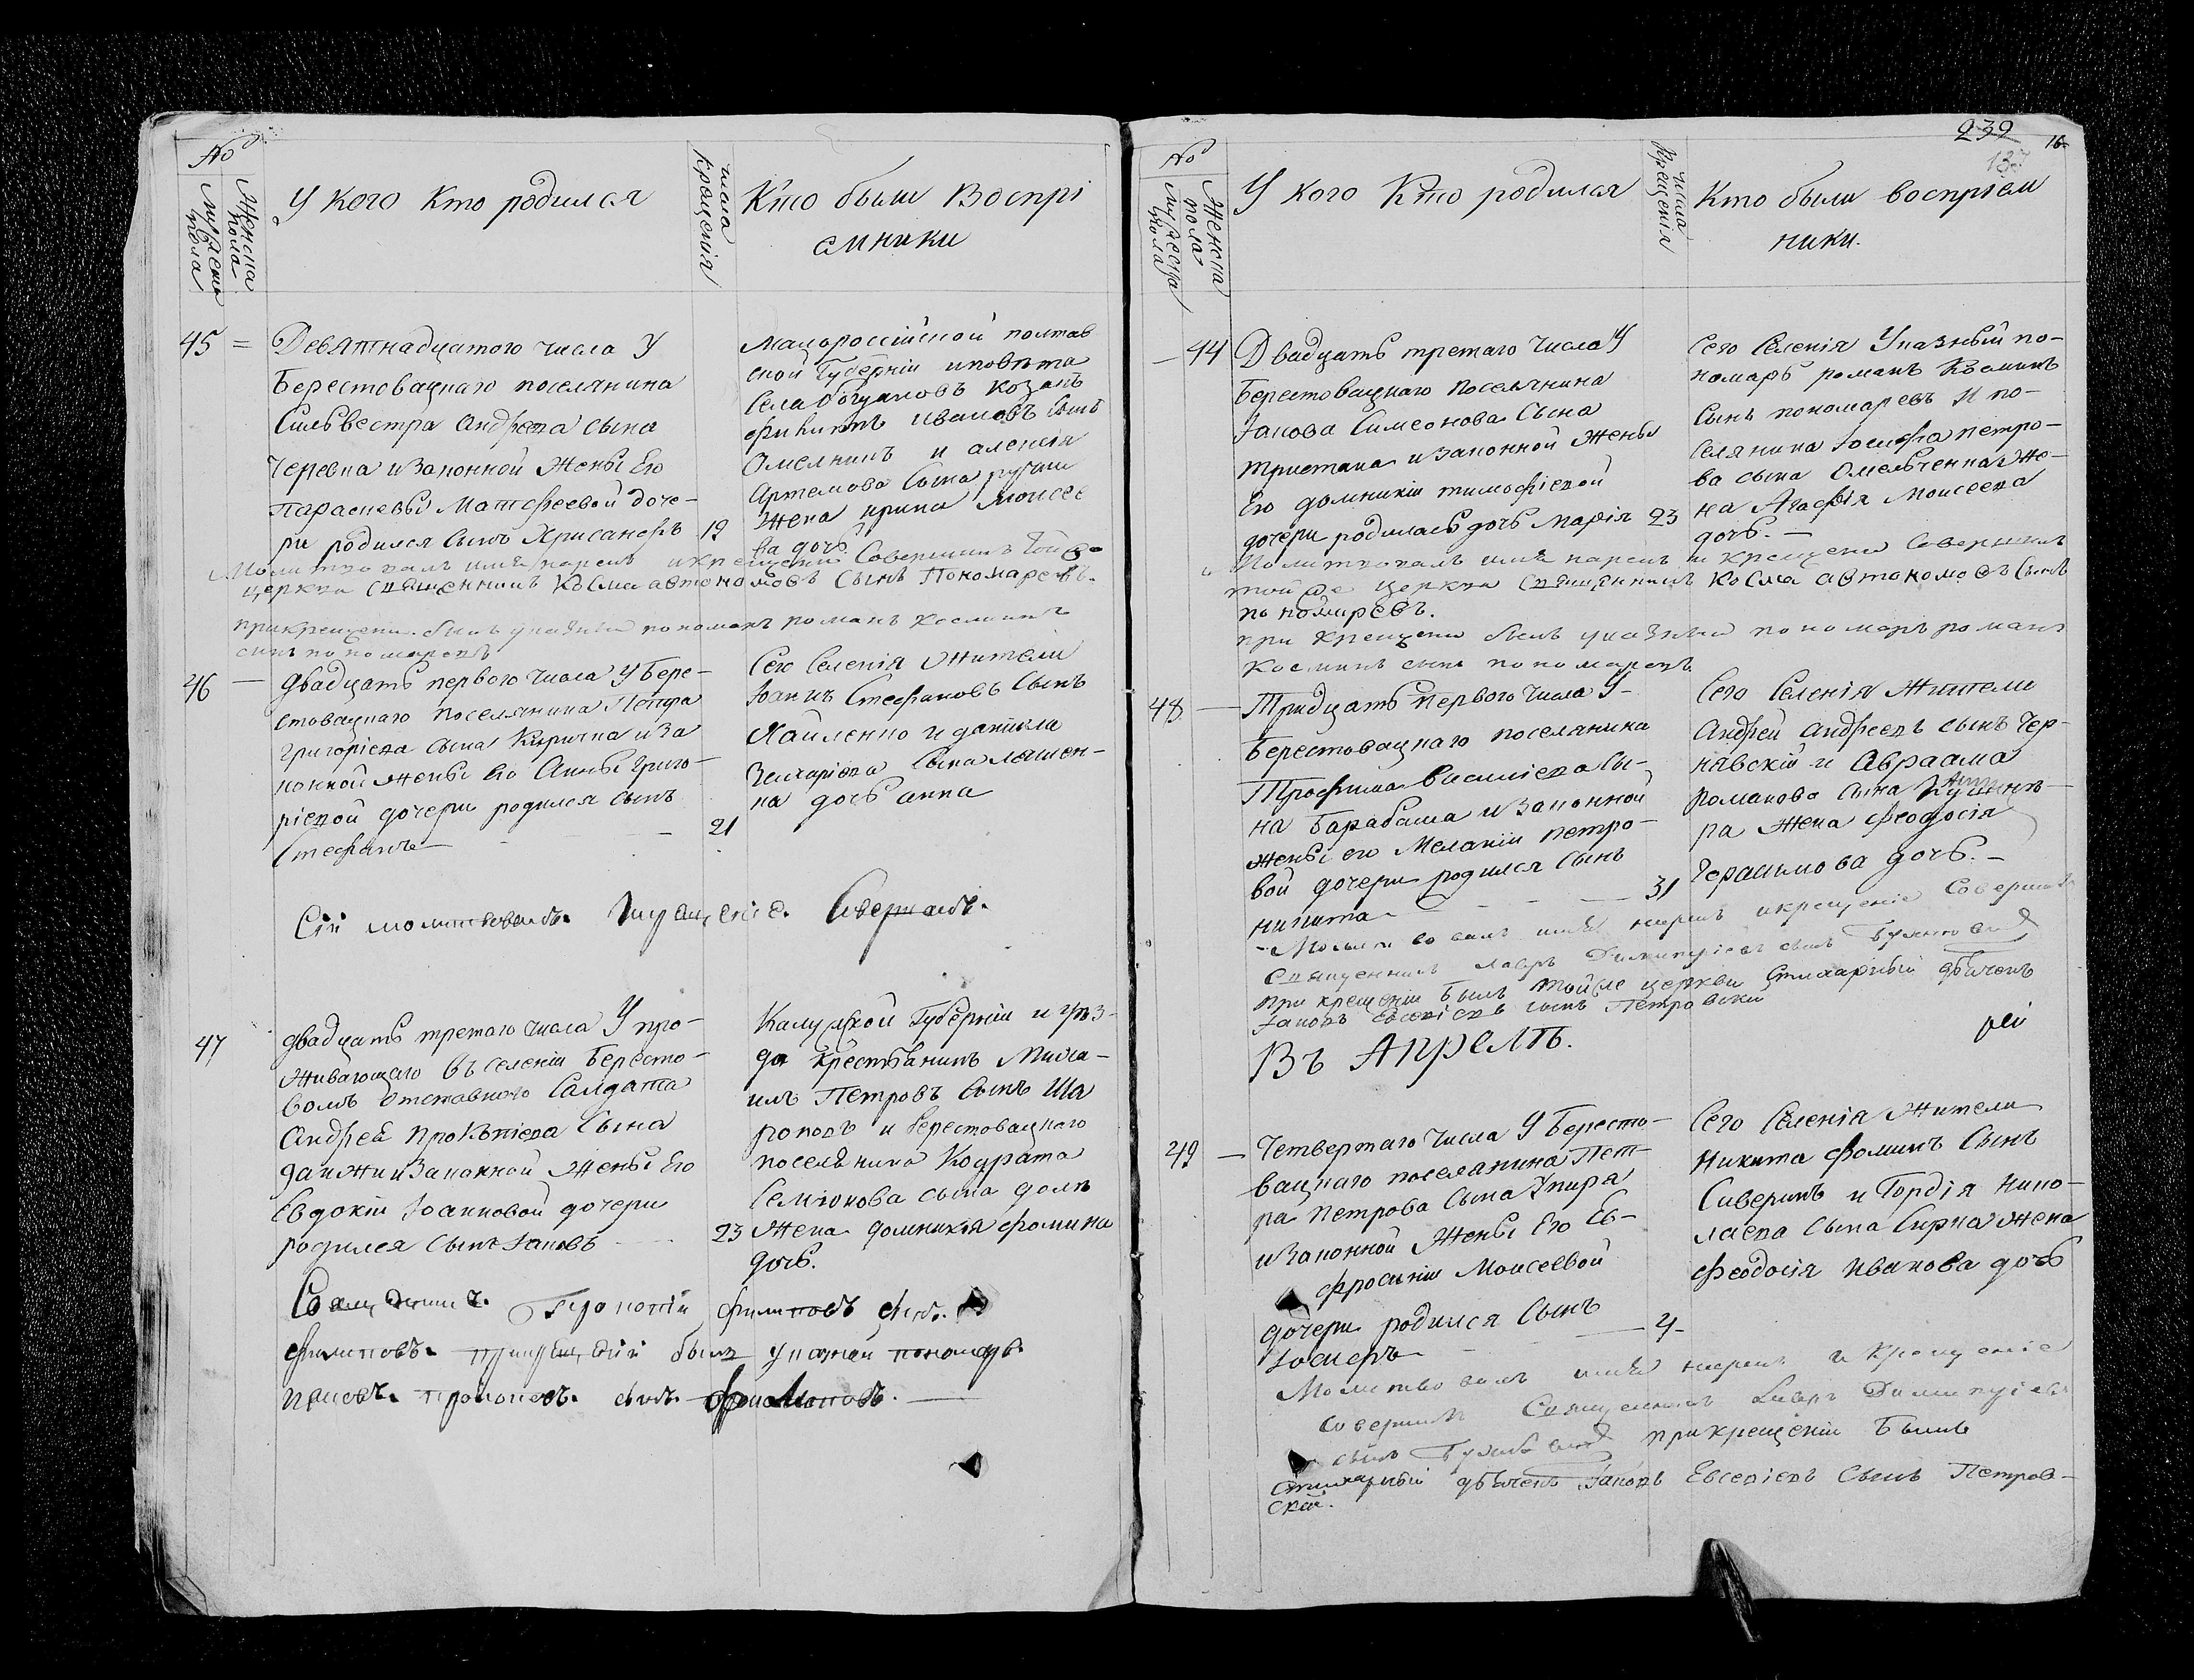 №
Мужеска пола
Женска пола
У кого Кто родился
числа Крещенія
Кто были Воспрі
емники
45 =
Девятнадцатого числа У
Берестовацкаго поселянина
Сильвестра Андреева сына
Черевка и законной Жены Его
Параскевы Матфеевой доче-
ри родился сынъ Хрисанфъ 19
Малороссійской полтав
ской Губерніи и повѣта
Села Богдановъ козакъ
Ивановъ сынъ
Омелнинъ и алексія
Артемова Сына
Жена ирина Моисее
ва дочь.
Молитвовалъ имя нарекъ и крещеніе Совершилъ той же
церкви священникъ Косма автономовъ Сынъ Пономаревъ.
при крещеніи былъ указный пономарь романъ косминъ
сынъ пономаревъ
46 —
двадцать первого числа У Бере-
стовацкаго поселянина Петра
Григоріева сына Киричка и за
конной жены его Анны Григо-
ріевой дочери родился сынъ
Стефанъ 21
Сего Селенія Жители
Іоанъ Стефановъ Сынъ
Хайленко и даніила
Захаріева Сына ляшен-
ка дочь анна
Сій молитвовалъ. и крещеніе. Совершалъ.
47
двадцать третаго числа У про-
живающаго въ селеніи Бересто-
вомъ отставного Салдата
Андрея Прокопіева Сына
и Законной Жены Его
Евдокіи Іоанновой дочери
родился сынъ Іаковъ 23
Калужской Губерніи и уѣз-
да крестьянинъ Миха-
илъ Петровъ Сынъ Ша
роновъ и берестовацкаго
поселянина Кодрата
Семіонова сына
Жена домникія фомина
дочь.
Священникъ. Прокопій филиповъ сынъ.
филиповъ. при крещеніи былъ указной пономарь.
прокопіевъ. сынъ. филиповъ. —
239
16
137
№
Мужеска пола
Женска пола
У кого Кто родился
числа Крещенія
Кто были воспріем
ники.
— 44
Двадцать третаго числа У
Берестовацкаго поселянина
Іакова Симеонова Сына
Тристана и законной Жены
Его домникіи тимофіевой
дочери родилась дочь Марія 23
Сего Селенія Указный по-
номарь романъ Косминъ
Сынъ пономаревъ И по-
селянина Іосифа петро-
ва сына Омельченка Же-
на Агафія Моисеева
дочь. —
Молитвовалъ имя нарекъ и крещеніе Совершилъ
той же церкви священникъ Косма автономовъ Сынъ
пономаревъ.
при крещеніи былъ указный пономарь романъ
косминъ сынъ пономаревъ
48 —
Тридцать первого числа У
Берестовацкаго поселянина
Трофима Василіева Сы-
на Барабаша и Законной
жены его Меланіи петро-
вой дочери родился сынъ
никита 31
Сего Селенія Жители
Андрей Андреевъ сынъ Чер-
нявскій и Авраама
романова сына
ра Жена феодосія
Герасимова дочь. —
Молитвовалъ имя нарекъ и крещеніе Совершилъ
Священникъ лавръ Димитріевъ сынъ
при крещеніи былъ той же церкви Стихарный дьячекъ
Іаковъ Евсевіевъ сынъ Петровскій
Въ Апрелѣ.
49 —
Четвертаго числа У Бересто-
вацкаго поселянина Пет-
ра Петрова Сына
и Законной Жены Его Ев-
фросиніи Моисеевой
дочери родился Сынъ
Іосифъ 4
Сего Селенія Жители
Никита фоминъ Сынъ
Северинъ и Гордія Нико-
лаева сына Сирка Жена
феодосія Иванова дочь
Молитвовалъ имя нарекъ и крещеніе
совершилъ Священникъ Лавръ Димитріевъ
сынъ при крещеніи былъ
Стихарный дьячекъ Іаковъ Евсевіевъ Сынъ Петров-
скій.